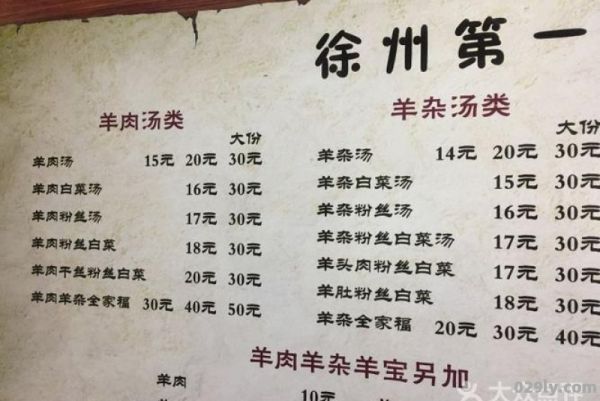 徐州第一
羊肉汤类
大份
羊肉汤 15元 20元 30元
羊肉白菜汤 16元 30元
羊肉粉丝汤 17元 30元
羊肉粉丝白菜 18元 30元
羊肉干丝粉丝白菜 20元 30元
羊肉羊杂全家福 30元 40元 50元
羊杂汤类
大份
羊杂汤 14元 20元 30元
羊杂白菜汤 15元 30元
羊杂粉丝汤 16元 30元
羊杂粉丝白菜汤 17元 30元
羊头肉粉丝白菜 17元 30元
羊肚粉丝白菜 18元 30元
羊杂全家福 20元 30元 40元
羊肉羊杂羊宝另加
羊肉 10元
029ly.com